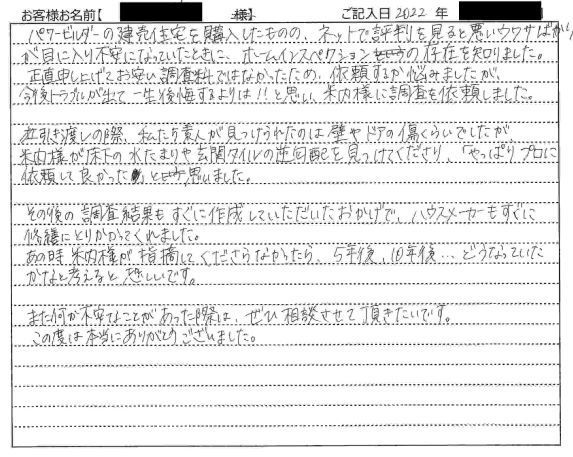 お客様お名前【 様】 ご記入日2022 年
パワービルダーの建売住宅を購入したものの、ネットで評判を見ると悪いウワサばかり
が目に入り不安になっていたときに、ホームインスペクションの存在を知りました。
正直申し上げてお安い調査料ではなかったため、依頼するか悩みましたが、
今後トラブルが出て一生後悔するよりは!!と思い、米内様に調査を依頼しました。
引き渡しの際、私たち素人が見つけられたのは壁やドアの傷くらいでしたが
米内様が床下の水たまりや玄関タイルの逆勾配を見つけてくださり、「やっぱりプロに
依頼して良かった」と思いました。
その後の調査結果もすぐに作成していただいたおかげで、ハウスメーカーもすぐに
修繕にとりかかってくれました。
あの時米内様が指摘してくださらなかったら、5年後、10年後…どうなっていた
かなと考えると恐しいです。
また何か不安なことがあった際は、ぜひ相談させて頂きたいです。
この度は本当にありがとうございました。